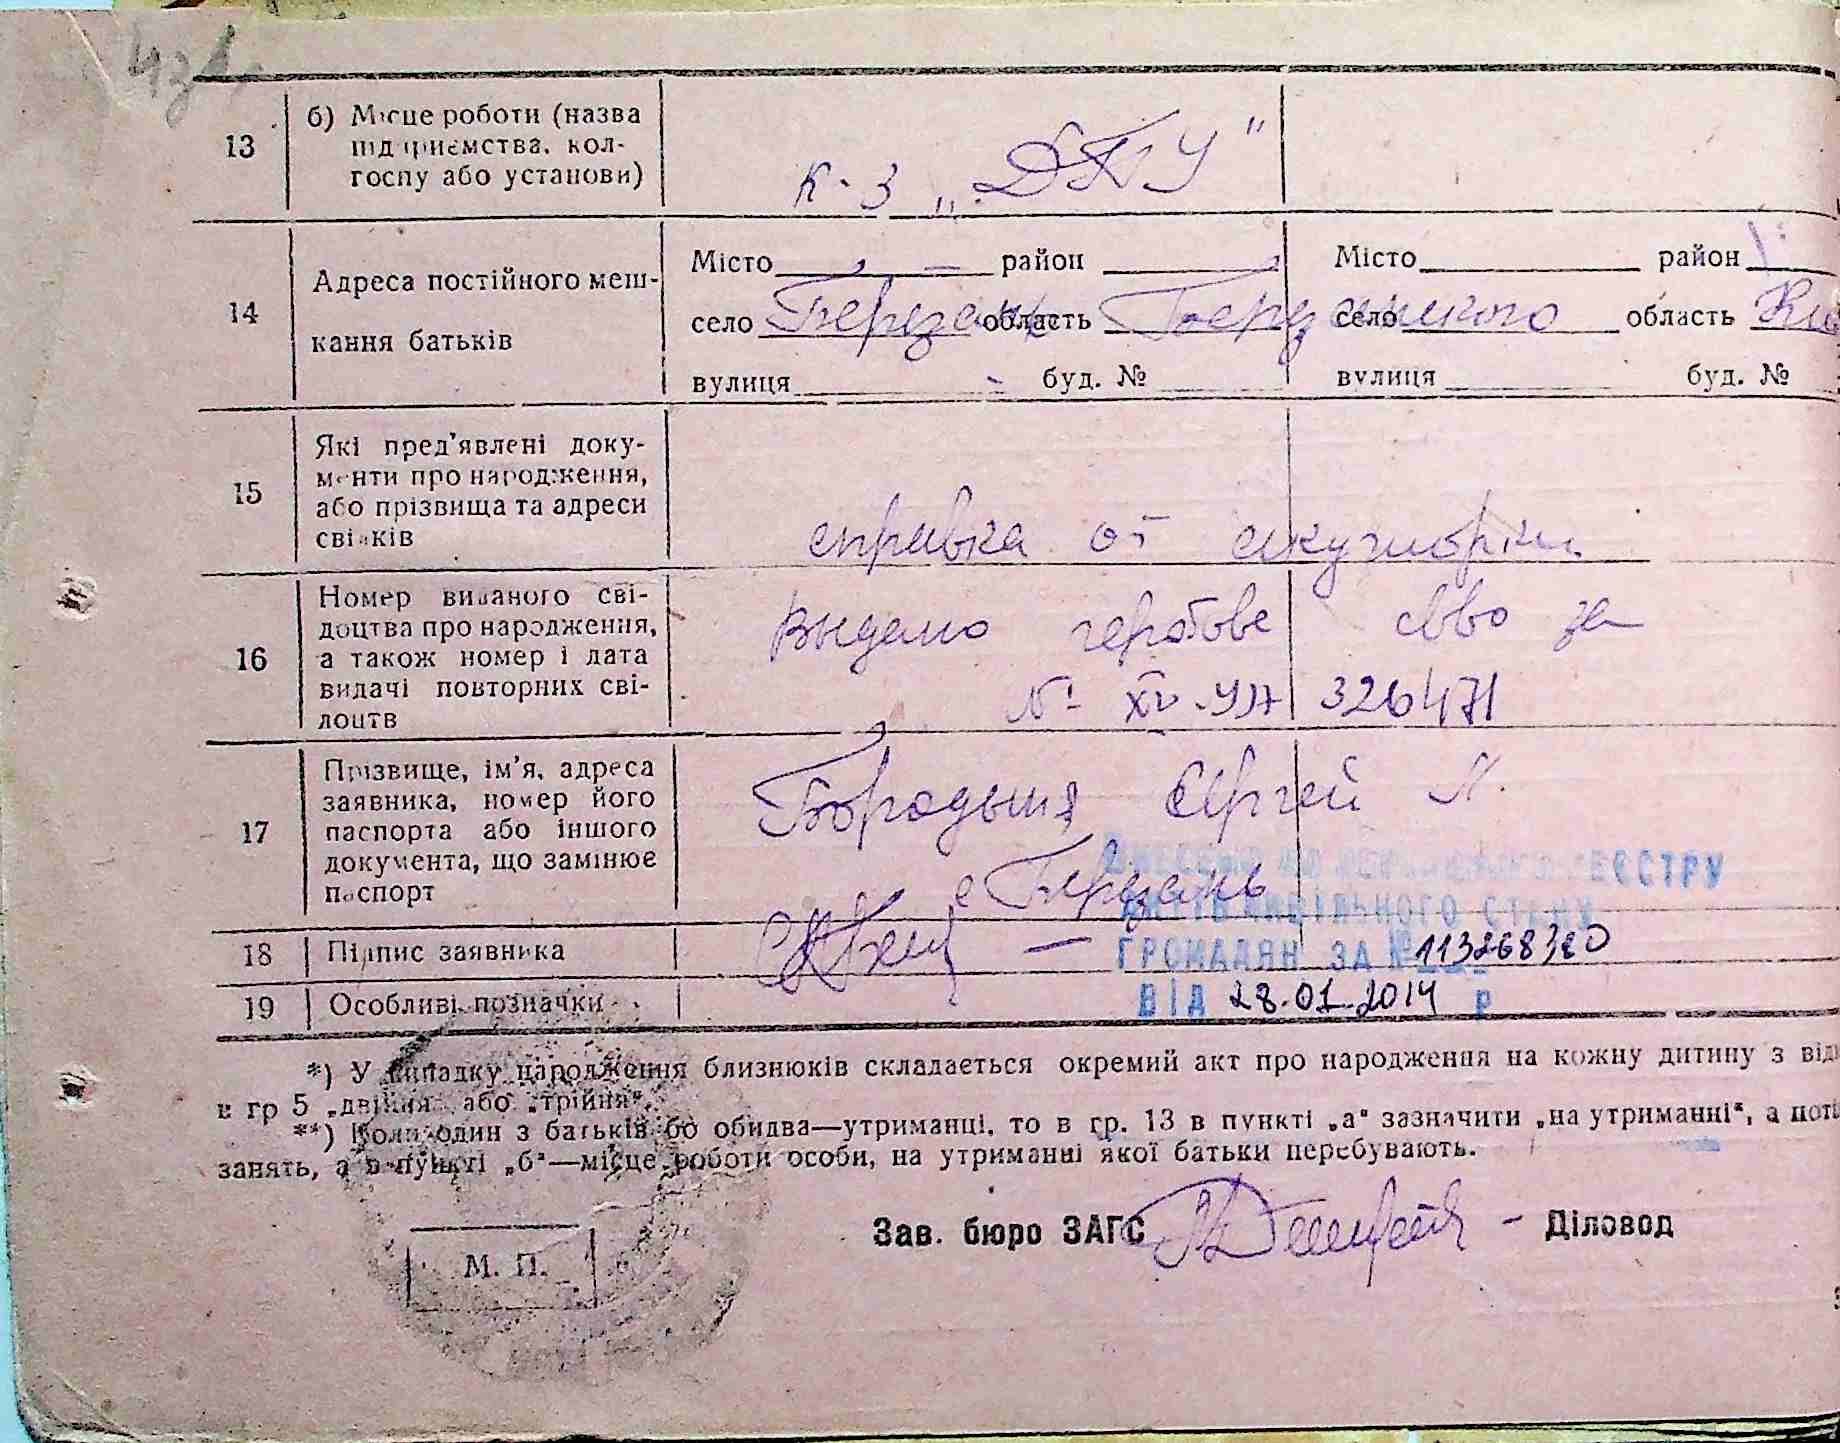 13
б) Місце роботи (назва
підприємства, кол-
госпу або установи)
к-з „ДПУ"
14
Адреса постійного меш-
кання батьків
Місто район
село Березань область Березанського
вулиця буд. №
Місто район
село область
вулиця буд. №
15
Які пред'явлені доку-
менти про народження,
або прізвища та адреси
свідків
справка от акушорки
16
Номер виданого сві-
доцтва про народження,
а також номер і дата
видачі повторних сві-
доцтв
Выдано гербове свво за
№ XV-УЯ 326471
17
Прізвище, ім'я, адреса
заявника, номер його
паспорта або іншого
документа, що замінює
паспорт
Сергей
с Березань
РЕЄСТРУ
АКТІВ ЦИВІЛЬНОГО СТАНУ
18
Підпис заявника
ГРОМАДЯН ЗА № 113268320
19
Особливі позначки
ВІД 28.01.2014 р
*) У випадку народження близнюків складається окремий акт про народження на кожну дитину з від
в гр 5 „двійня" або „трійня".
**) Коли один з батьків бо обидва—утриманці, то в гр. 13 в пункті „а" зазначити „на утриманні", а поті
занять, а в пункті „б"—місце роботи особи, на утриманні якої батьки перебувають.
Зав. бюро ЗАГС - Діловод
М. П.